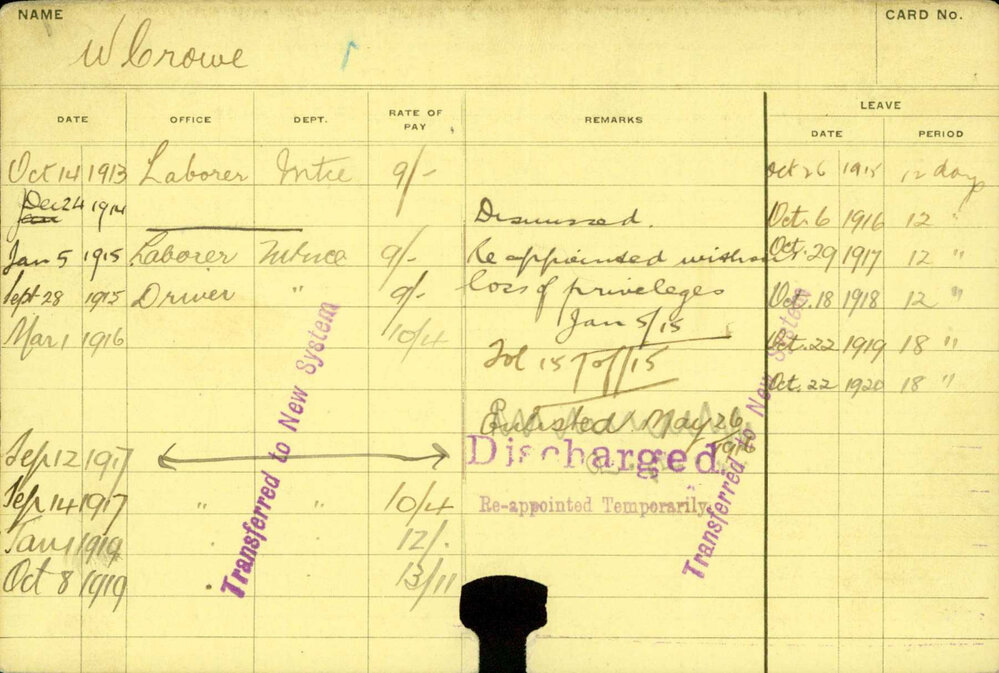 NAME CARD No.
W Crowe
DATE OFFICE DEPT. RATE OF PAY REMARKS LEAVE
DATE PERIOD
Oct 14 1913 Laborer Mtce 9/- Oct 26 1915 12 days
Dec 24 1914 Dismissed. Oct. 6 1916 12 "
Jan 5 1915 Laborer Mtnce 9/- Re appointed without Oct. 29 1917 12 "
Sept 28 1915 Driver " 9/- loss of priveleges Oct. 18 1918 12 "
Jan 5/15
Mar 1 1916 10/4 Oct. 22 1919 18 "
Oct. 22 1920 18 "
Enlisted May 26 1916
Sep 12 1917 Discharged.
Sep 14 1917 " " 10/4 Re-appointed Temporarily.
Jan 1 1919 12/-
Oct 8 1919 13/11
Transferred to New System
Transferred to New System